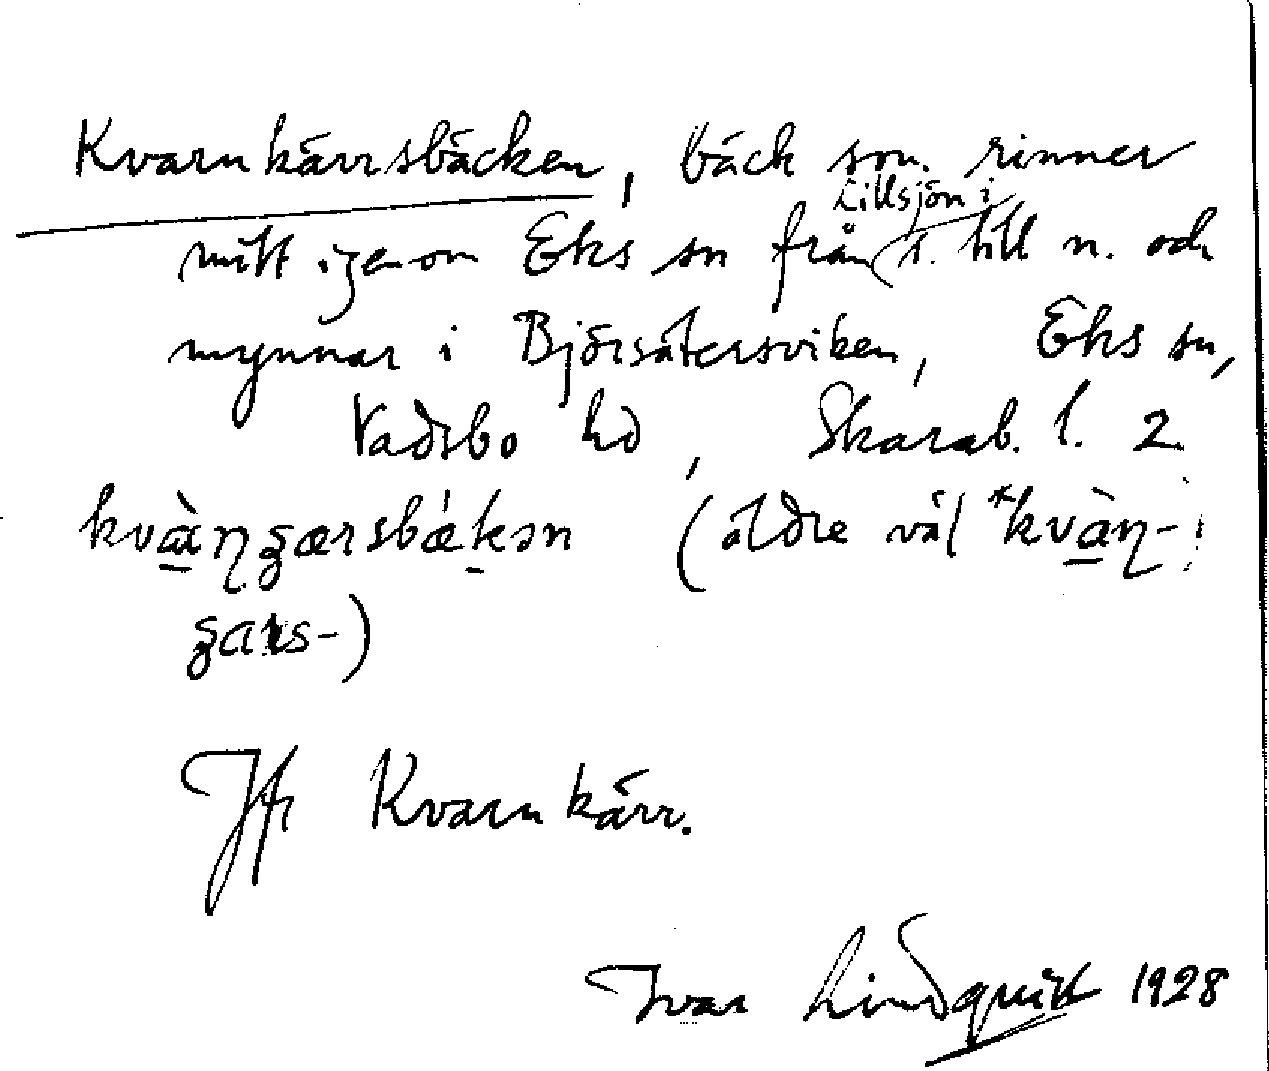 Kvarnkärrsbäcken, bäck som rinner
mitt igenom Eks sn från Lillsjön i s. till n. och
mynnar i Björsätersviken, Eks sn,
Vadsbo hd, Skarab. l. 2
kvàɳgærsbǽkən (äldre väl *kvàɳ-
gars-)
Jfr Kvarnkärr.
Ivar Lindquist 1928